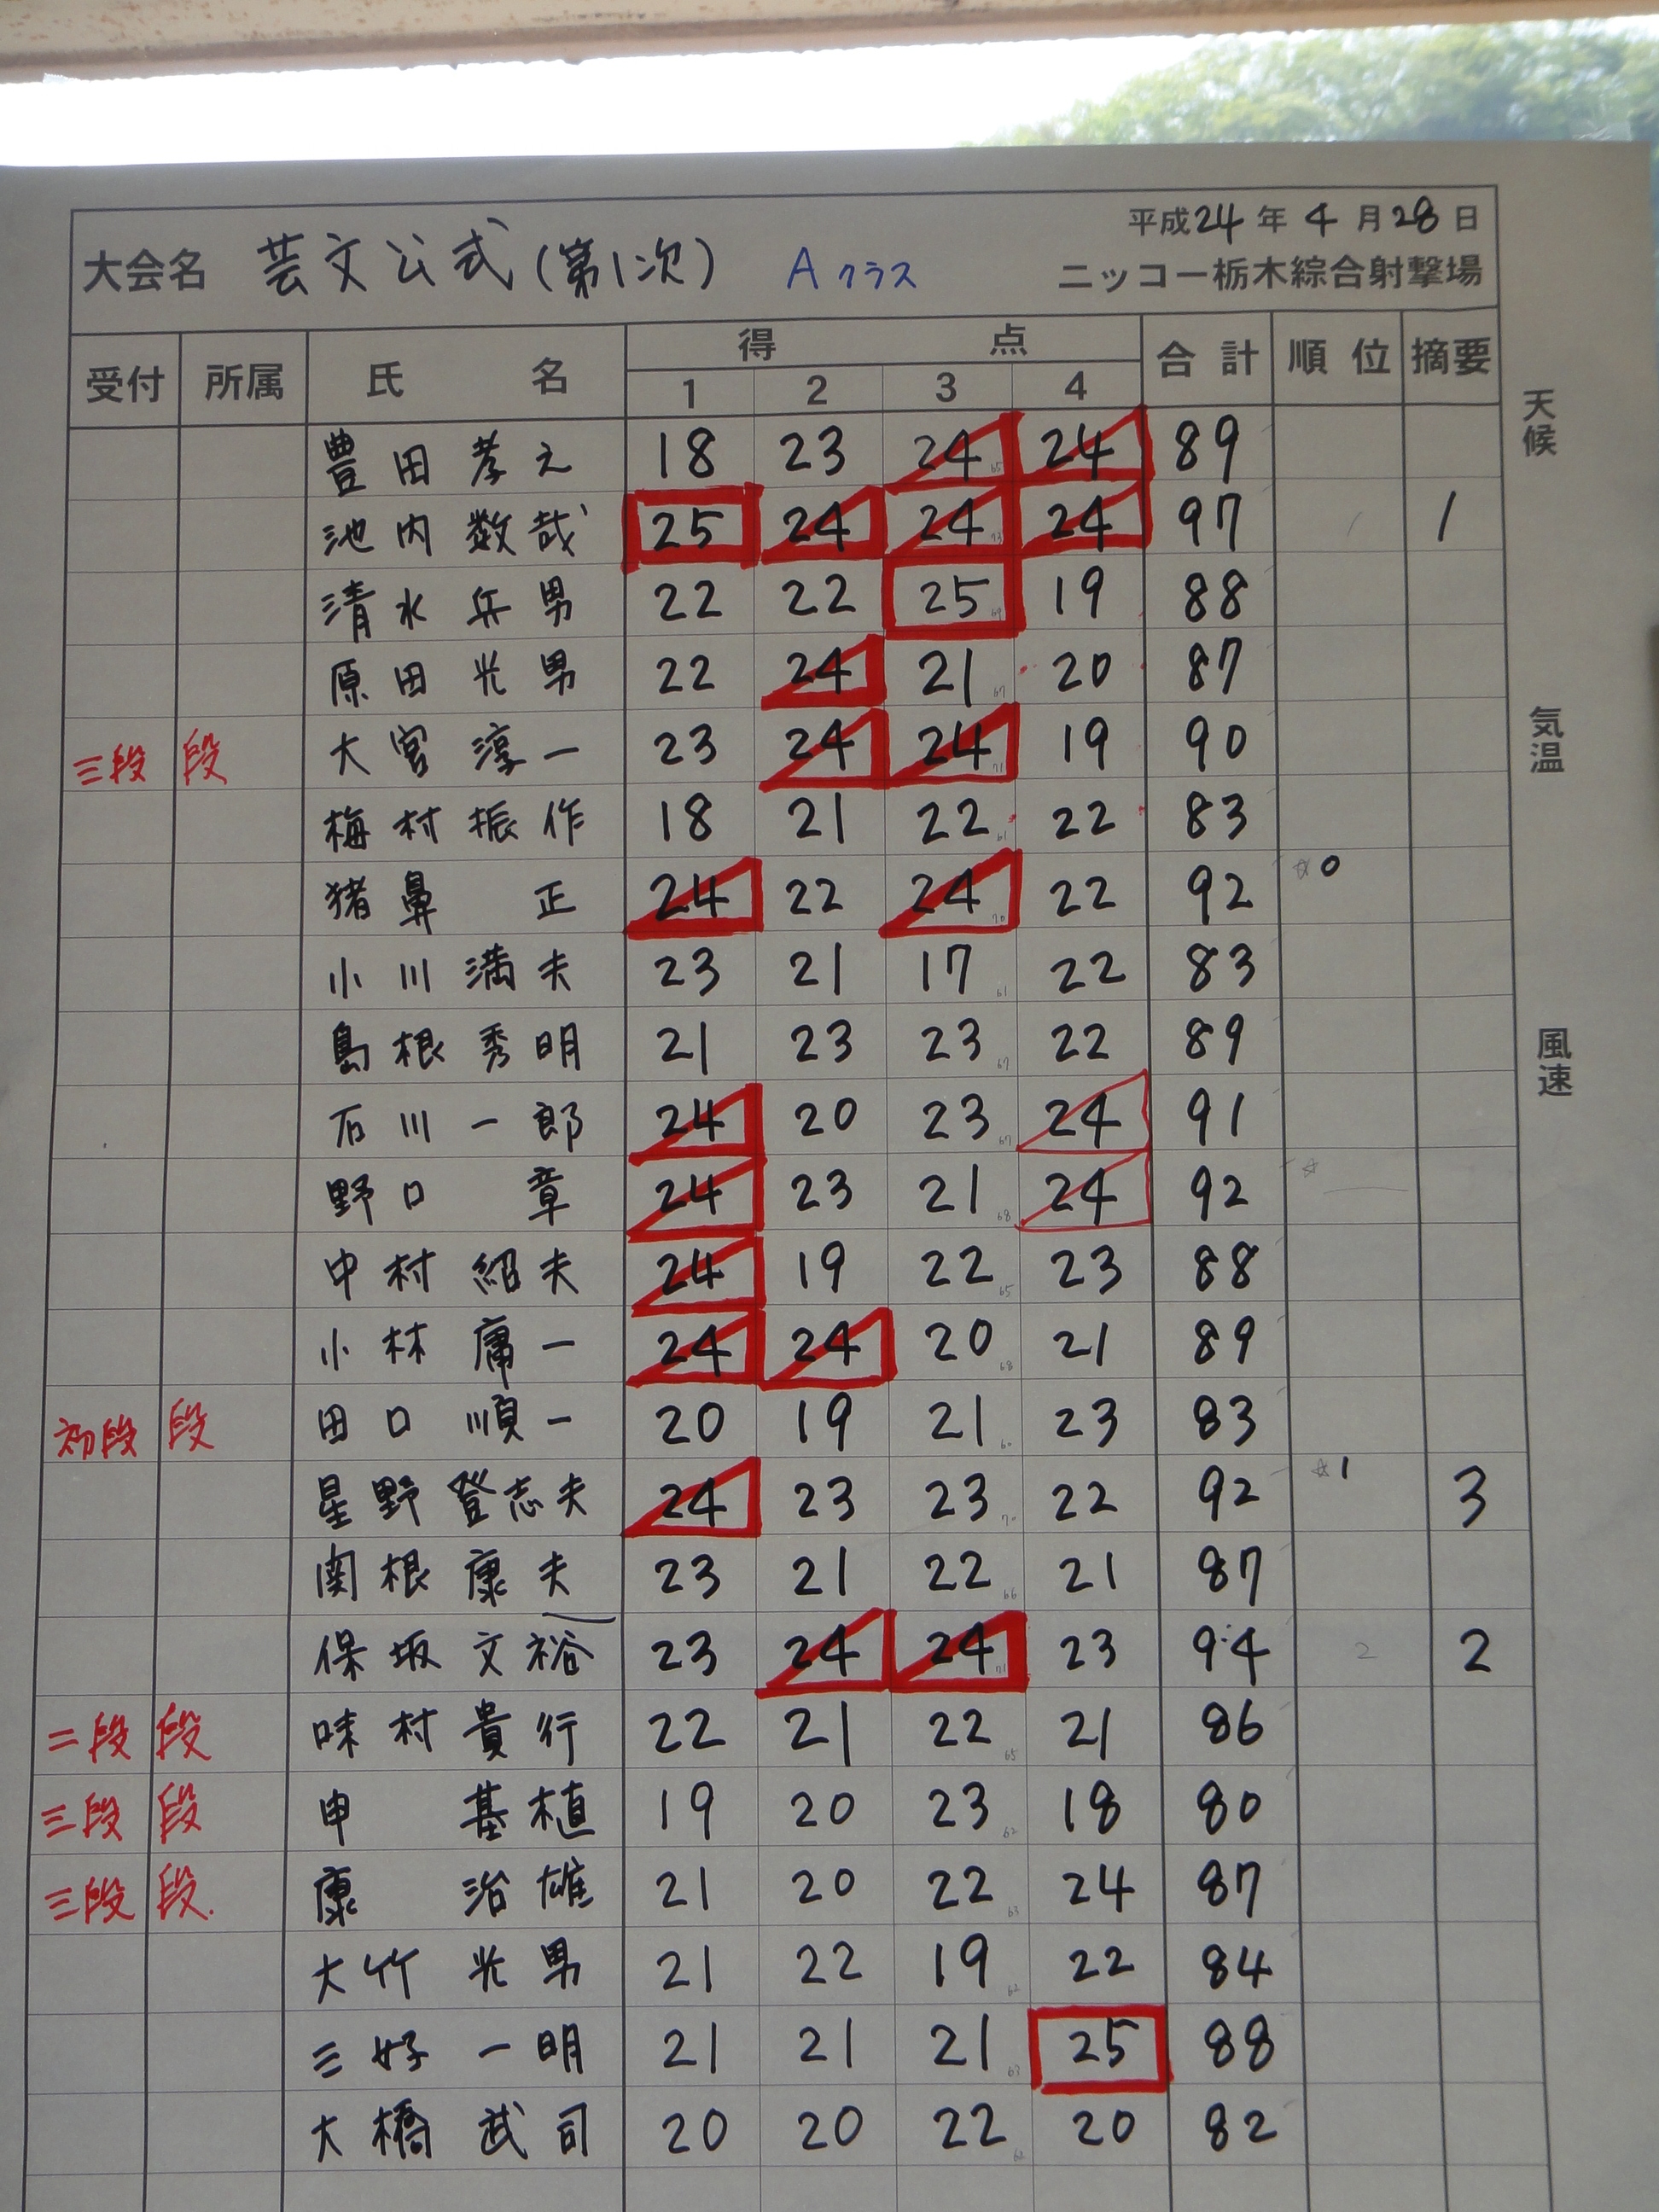 平成24年4月28日
大会名 芸文公式(第1次) Aクラス ニッコー栃木綜合射撃場
受付 所属 氏名 得点 合計 順位 摘要
1 2 3 4
豊田孝之 18 23 24 24 89
池内数哉 25 24 24 24 97 1
清水兵男 22 22 25 19 88
原田光男 22 24 21 20 87
三段 段 大宮淳一 23 24 24 19 90
梅村振作 18 21 22 22 83
猪鼻 正 24 22 24 22 92 ☆0
小川満夫 23 21 17 22 83
島根秀明 21 23 23 22 89
石川一郎 24 20 23 24 91
野口 章 24 23 21 24 92 ☆
中村紹夫 24 19 22 23 88
小林庸一 24 24 20 21 89
初段 段 田口順一 20 19 21 23 83
星野登志夫 24 23 23 22 92 ☆1 3
関根康夫 23 21 22 21 87
保坂文裕 23 24 24 23 94 2 2
二段 段 味村貴行 22 21 22 21 86
三段 段 申 基植 19 20 23 18 80
三段 段 康 治雄 21 20 22 24 87
大竹光男 21 22 19 22 84
三好一明 21 21 21 25 88
大橋武司 20 20 22 20 82
天候
気温
風速